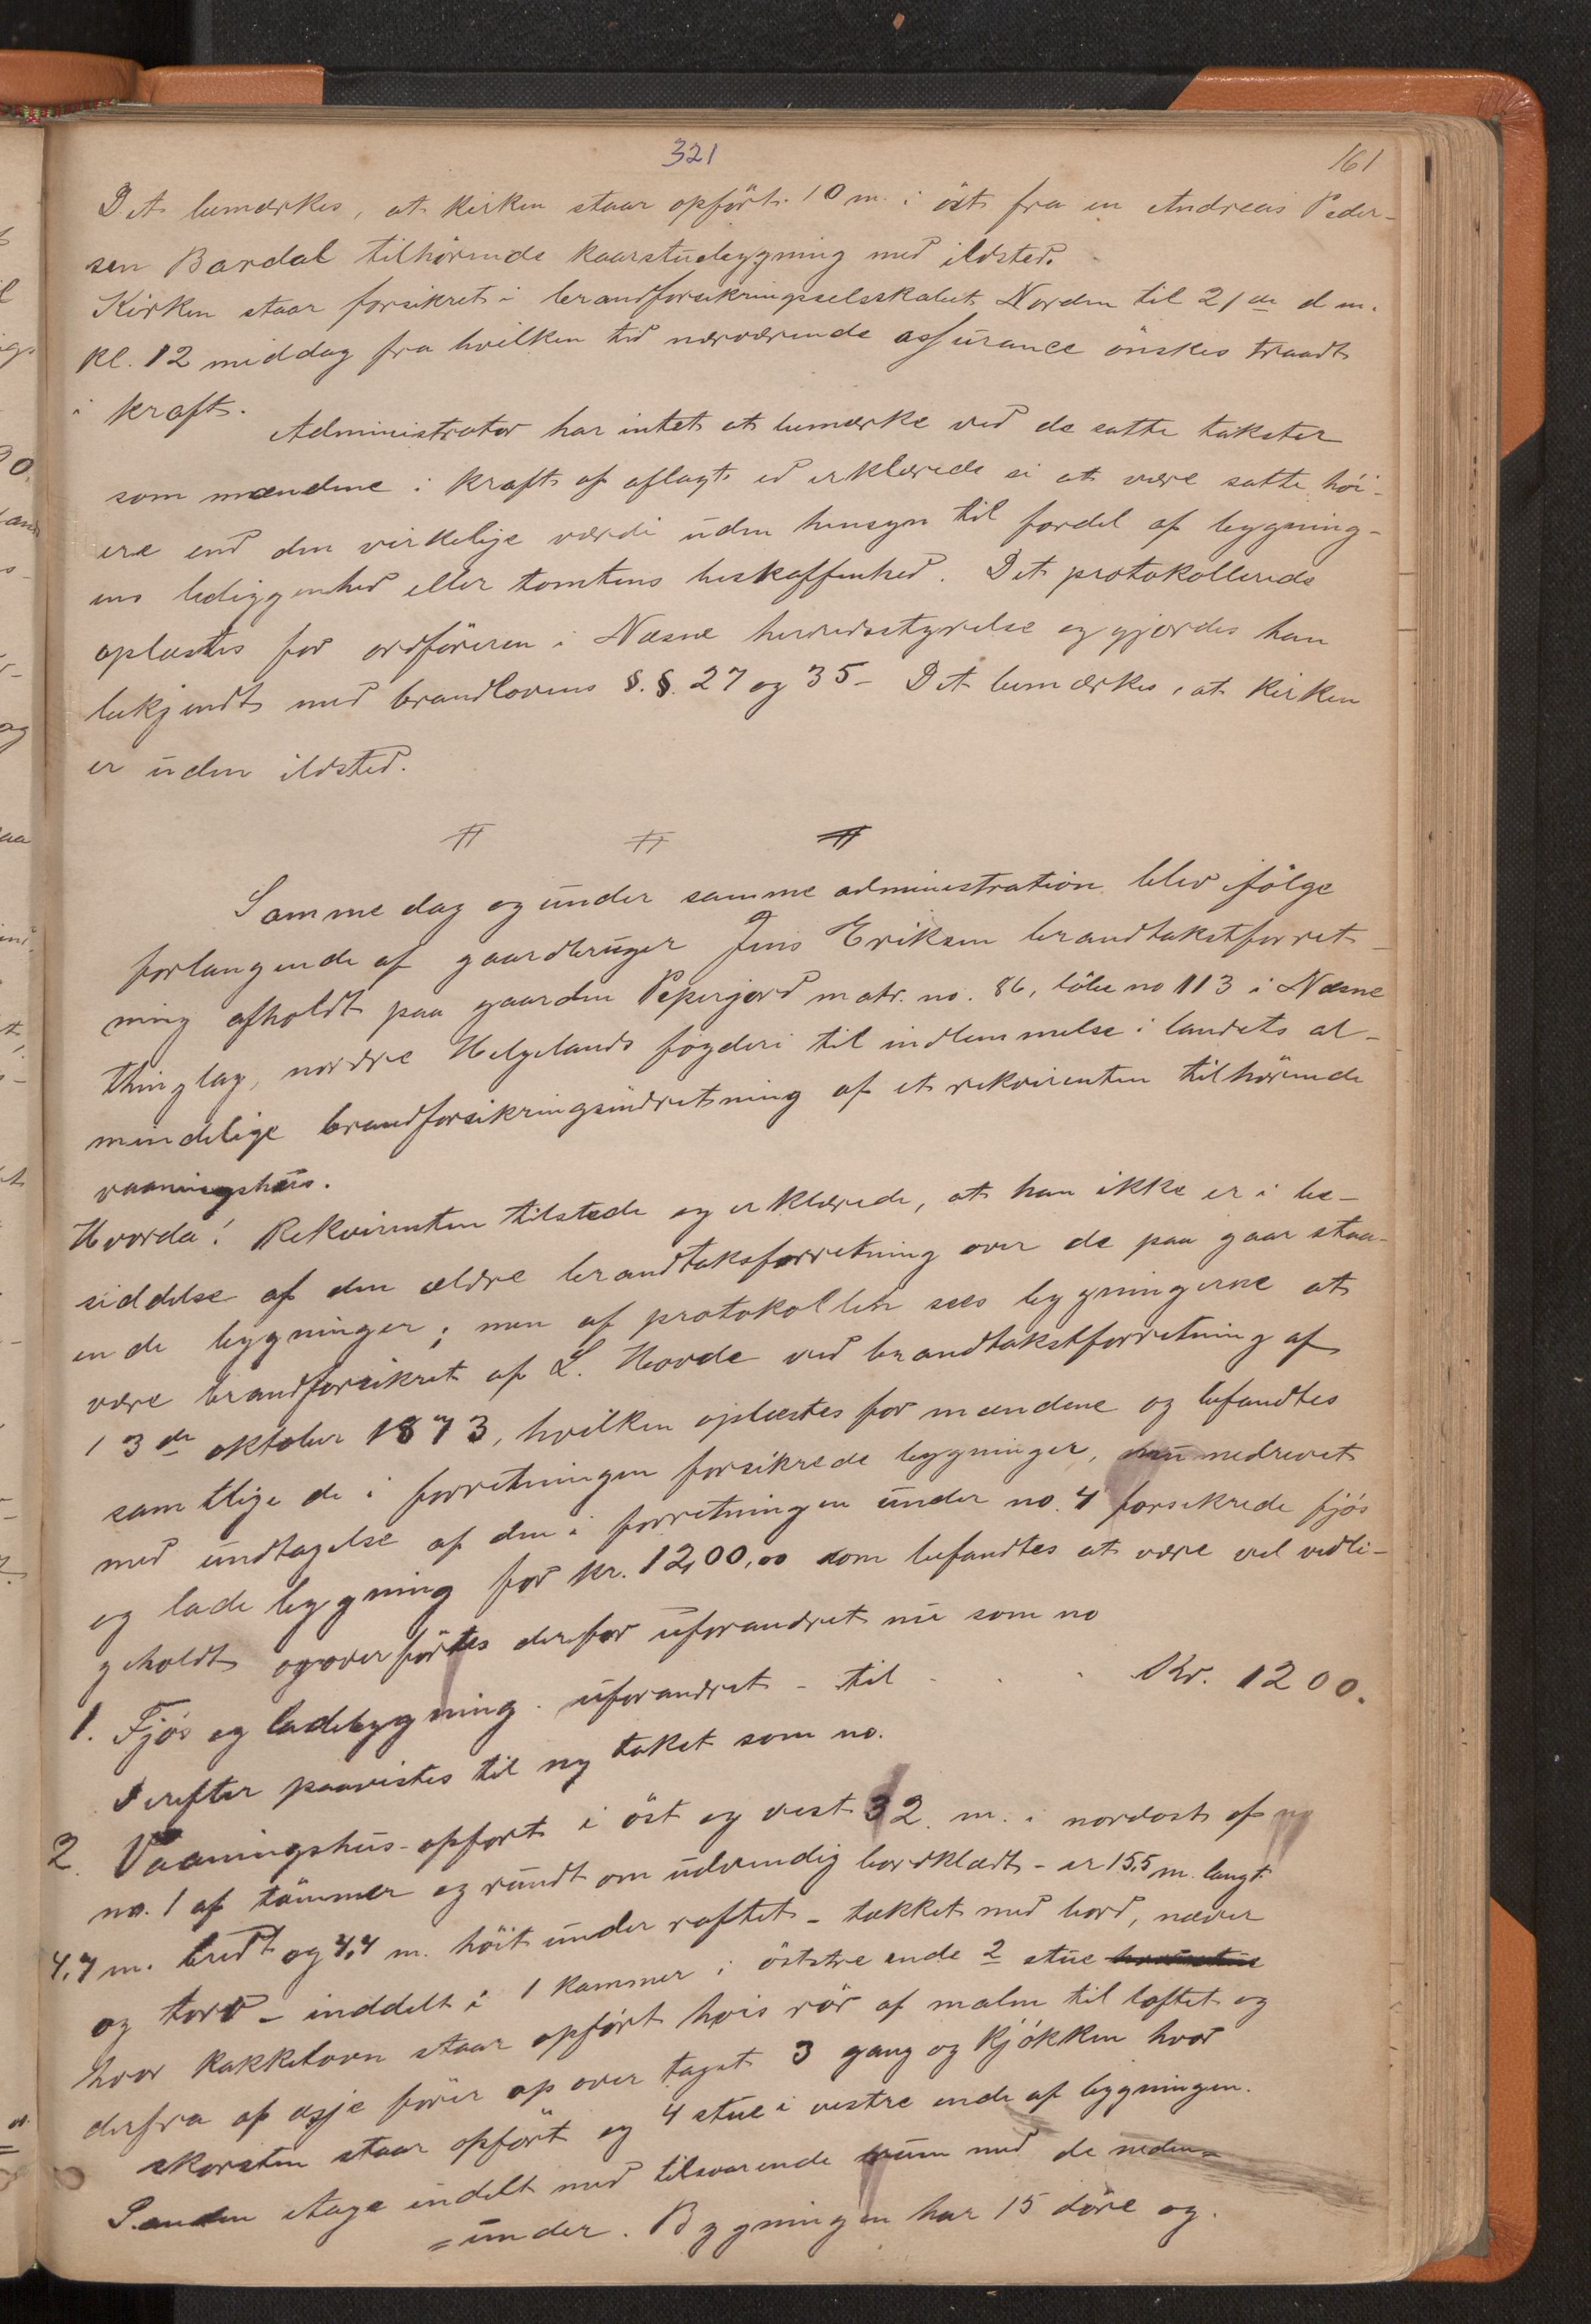 321
161
Det bemærkes, at kirken staar opført 10 m. i öst fra en Andreas Peder-
sen Bardal tilhörende kaarstuebygning med ildsted.
Kirken staar forsikret i brandforsikringsselsskabet Norden til 21de d m.
kl. 12 middag fra hvilken tid nærværende assurance önskes traadt
i kraft.
Administrator har intet at bemærke ved de satte takster
som mændene i kraft af aflagt ed erklærede ei at være satte höi-
ere end den virkelige værdi uden hensyn til fordel af bygning-
ens beliggenhed eller tomtens beskaffenhed. Det protokollerede
oplæstes for ordföreren i Næsne herredsstyrelse og gjordes han
bekjendt med brandlovens §.§. 27 og 35 - Det bemærkes, at kirken
er uden ildsted.
Samme dag og under samme administration blev ifölge
forlangende af gaardbruger Jens Eriksen brandtakstforret-
ning afholdt paa gaarden Pepergjord matr. no. 86, löbe no 113 i Næsne
thinglag, nordre Helgelands fogderi til indlemmelse i landets al-
mindelige brandforsikringsindretning af et rekvirenten tilhörende
vaaningshus.
Hvorda! Rekvirenten tilstede og erklærede, at han ikke er i be-
siddelse af den ældre brandtaksforretning over de paa gaar staa-
ende bygninger; men af protokollen sees bygningerne at
være brandforsikret af L. Hovde ved brandtakstforretning af
13de oktober 1873, hvilken oplæstes for mændene og befandtes
samtlige de i forretningen forsikrede bygninger, nu nedrevet
med undtagelse af den i forretningen under no. 4 forsikrede fjös
og lade bygning for kr. 1200,00 som befandtes at være vel vedli-
geholdt og overförtes derfor uforandret nu som no
1. Fjös og ladebygning uforandret - til - . . Kr. 1200.
Derefter paavistes til ny takst som no.
2. Vaaningshus - opført i öst og vest 32 m. i nordost af
no. 1 af tömmer og rundt om udvendig bordklædt - er 15,5 m. langt
4,7 m. bredt og 4,4 m. höit under raftet - tækket med bord, næver
og torv - inddelt i 1 kammer i östre ende 2 stue
hvor kakkelovn staar opført hvis rör af malm til loftet og
derfra af esje förer op over taget 3 gang og kjökken hvor
skorsten staar opfört og 4 stue i vestre ende af bygningen.
2anden etage indelt med tilsvarende rum med de neden=
=under. Bygningen har 15 döre og.